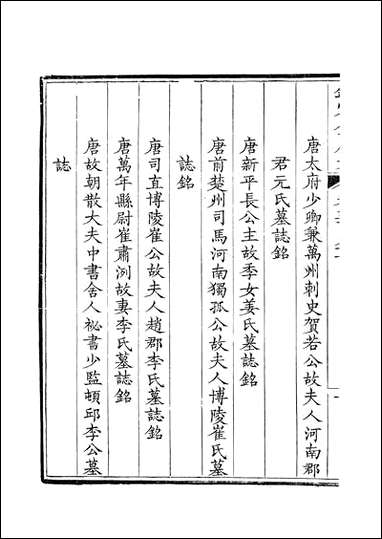 唐太府少卿兼萬州刺史賀若公故夫人河南郡
君元氏墓誌銘
唐新平長公主故季女姜氏墓誌銘
唐前楚州司馬河南獨孤公故夫人博陵崔氏墓
誌銘
唐司直博陵崔公故夫人趙郡李氏墓誌銘
唐萬年縣尉崔肅洌故妻李氏墓誌銘
唐故朝散大夫中書舍人祕書少監頓邱李公墓
誌